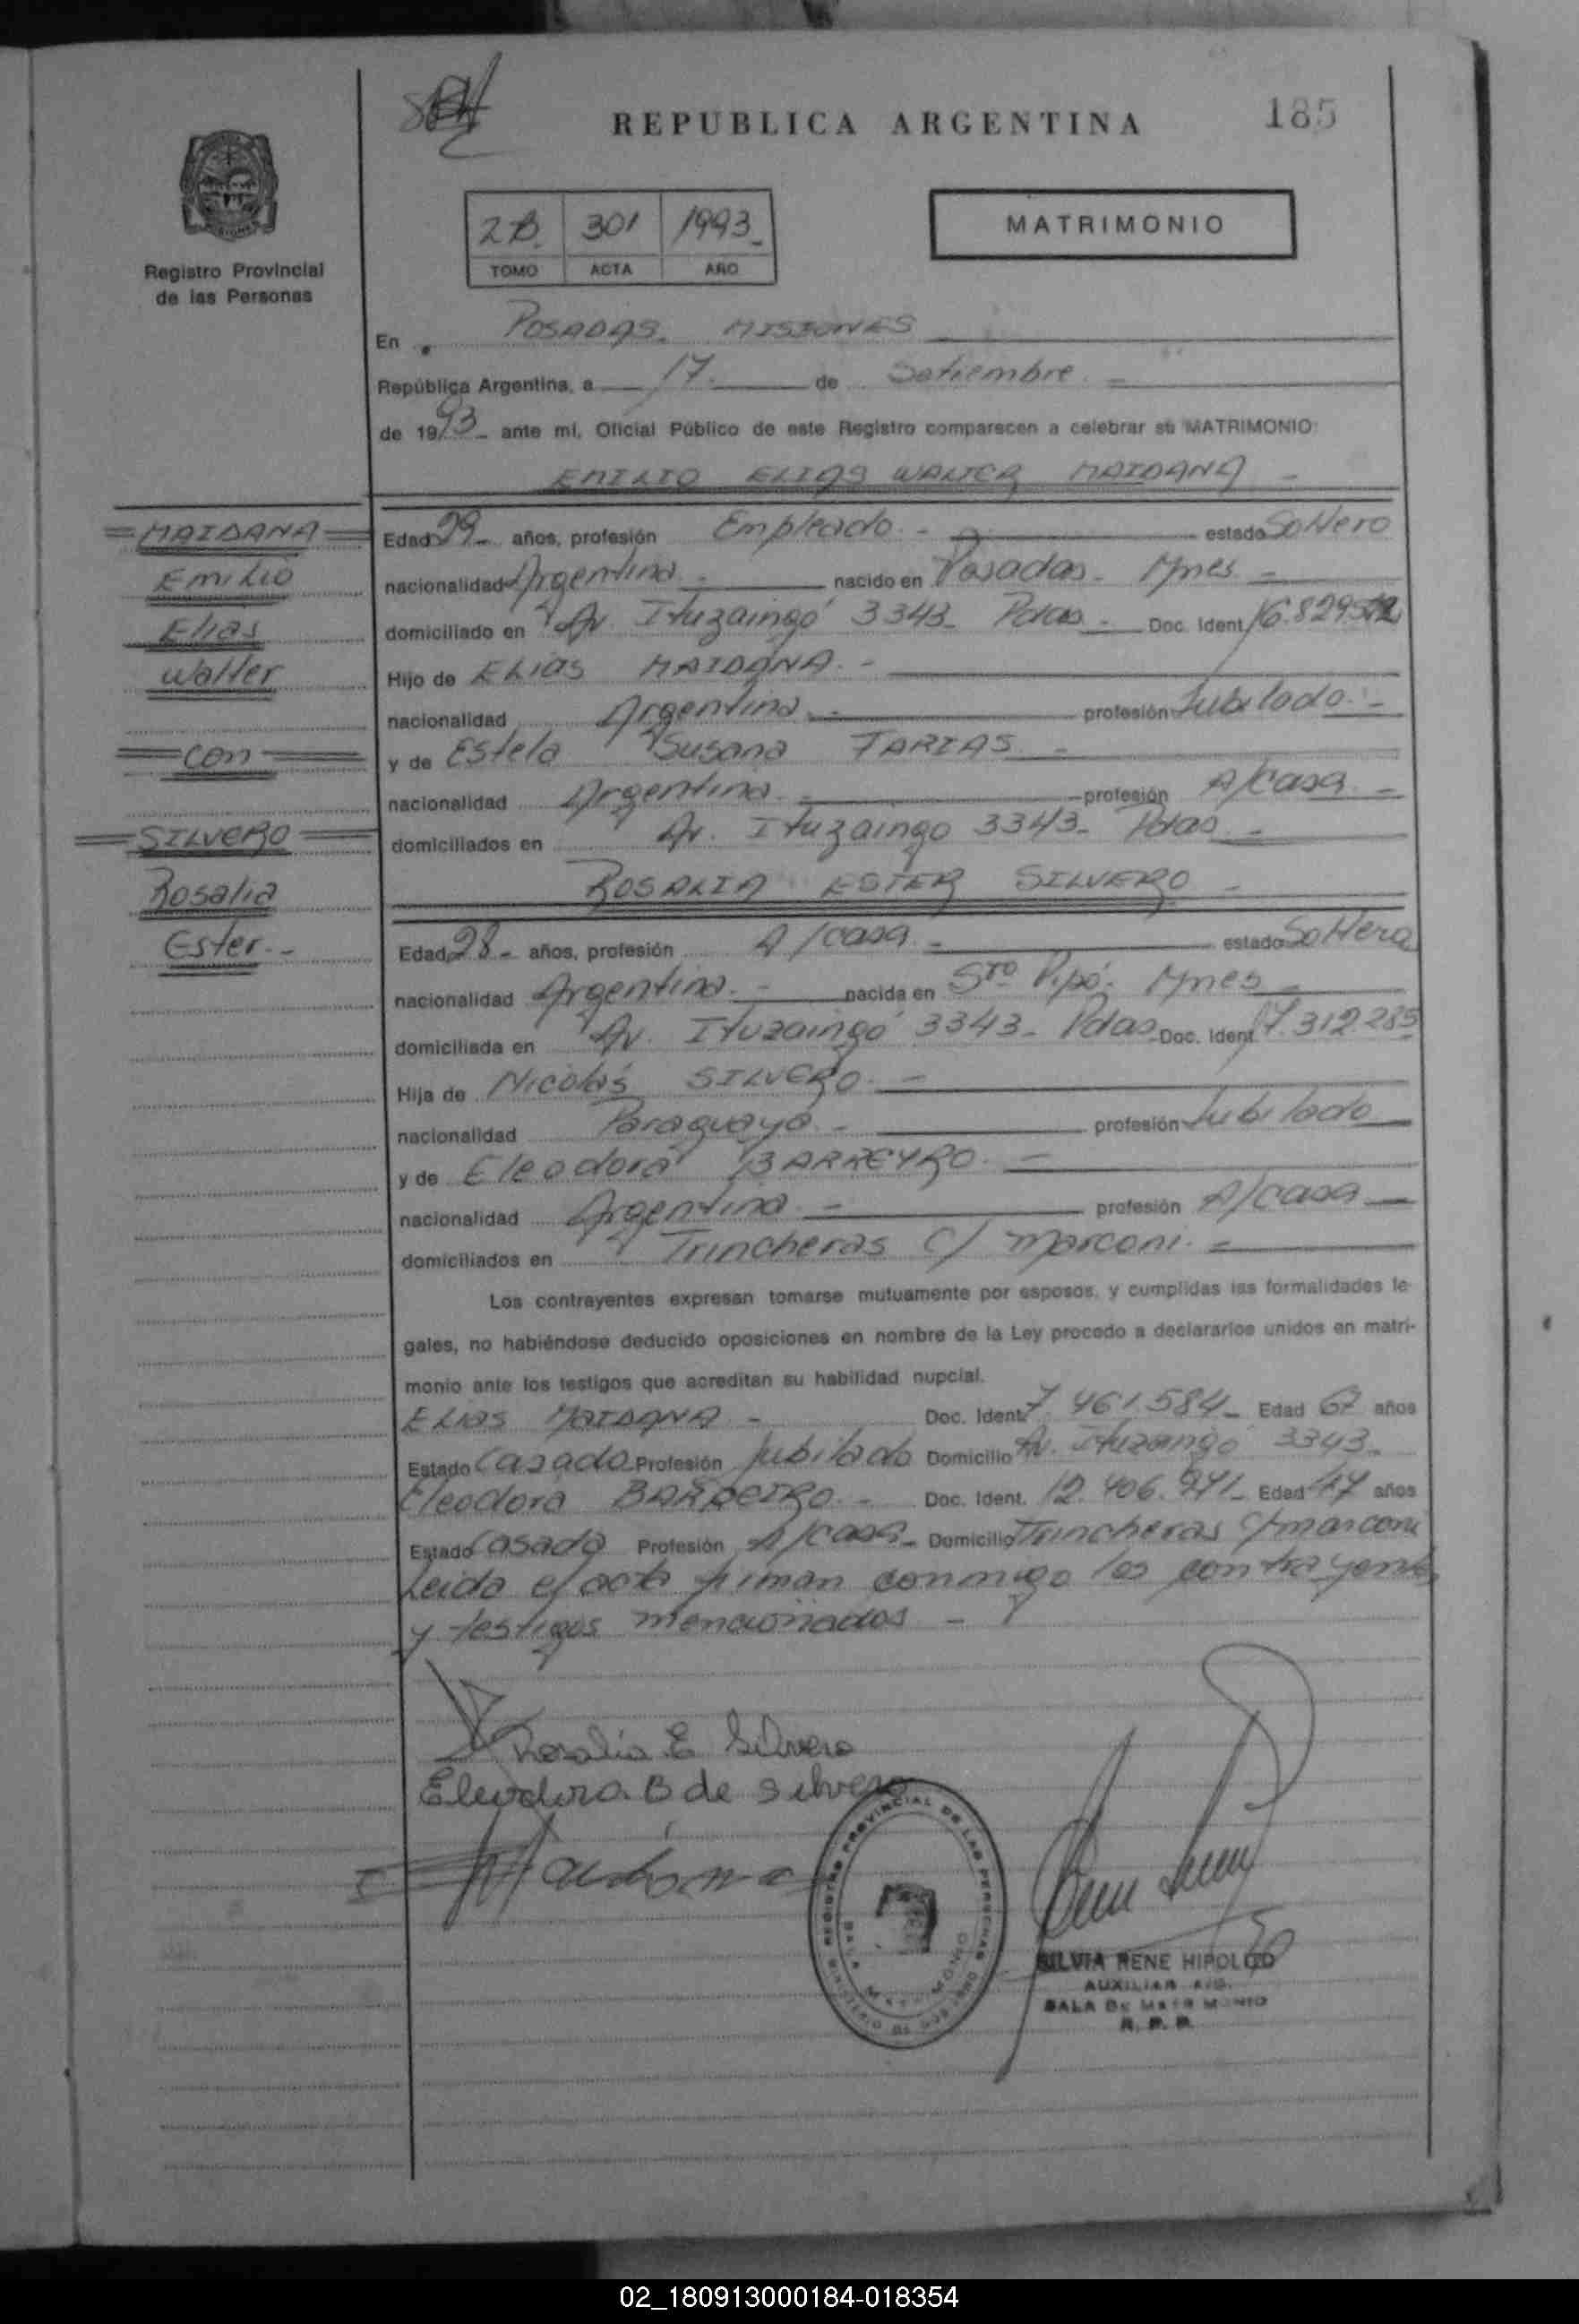 REPUBLICA ARGENTINA
185
Registro Provincial
de las Personas
2B. 301 1993
TOMO ACTA AÑO
MATRIMONIO
En POSADAS. MISIONES
República Argentina, a 17 de Setiembre
de 1993 ante mí, Oficial Público de este Registro comparecen a celebrar su MATRIMONIO:
EMILIO ELIAS WALTER MAIDANA
MAIDANA
Emilio
Elias
Walter
con
SILVERO
Rosalia
Ester
Edad 29 años, profesión Empleado estado Soltero
nacionalidad Argentina nacido en Posadas Mnes
domiciliado en Av. Ituzaingó 3343 Pdas Doc. Ident. 16.829.512
Hijo de ELIAS MAIDANA
nacionalidad Argentina profesión Jubilado
y de Estela Susana FARIAS
nacionalidad Argentina profesión A/casa
domiciliados en Av. Ituzaingo 3343 Pdas
ROSALIA ESTER SILVERO
Edad 28 años, profesión A/casa estado Soltera
nacionalidad Argentina nacida en Sto Pipó Mnes
domiciliada en Av. Ituzaingó 3343 Pdas Doc. Ident. 17.312.285
Hija de Nicolás SILVERO
nacionalidad Paraguaya profesión Jubilado
y de Eleodora BARREYRO
nacionalidad Argentina profesión A/casa
domiciliados en Trincheras C/ Marconi
Los contrayentes expresan tomarse mutuamente por esposos, y cumplidas las formalidades le-
gales, no habiéndose deducido oposiciones en nombre de la Ley procedo a declararlos unidos en matri-
monio ante los testigos que acreditan su habilidad nupcial.
ELIAS MAIDANA Doc. Ident. 7.461.584 Edad 67 años
Estado Casado Profesión Jubilado Domicilio Av. Ituzaingó 3343
Eleodora BARREIRO Doc. Ident. 12.406.971 Edad 47 años
Estado Casada Profesión A/casa Domicilio Trincheras C/ Marconi
Leida el acta firman conmigo los contrayentes
y testigos mencionados
Rosalia E Silvero
Eleodora B de Silvero
Maidana
REGISTRO PROVINCIAL DE LAS PERSONAS
SILVIA RENE HIPOLITO
AUXILIAR
SALA DE MATRIMONIO
R. P. P.
02_180913000184-018354